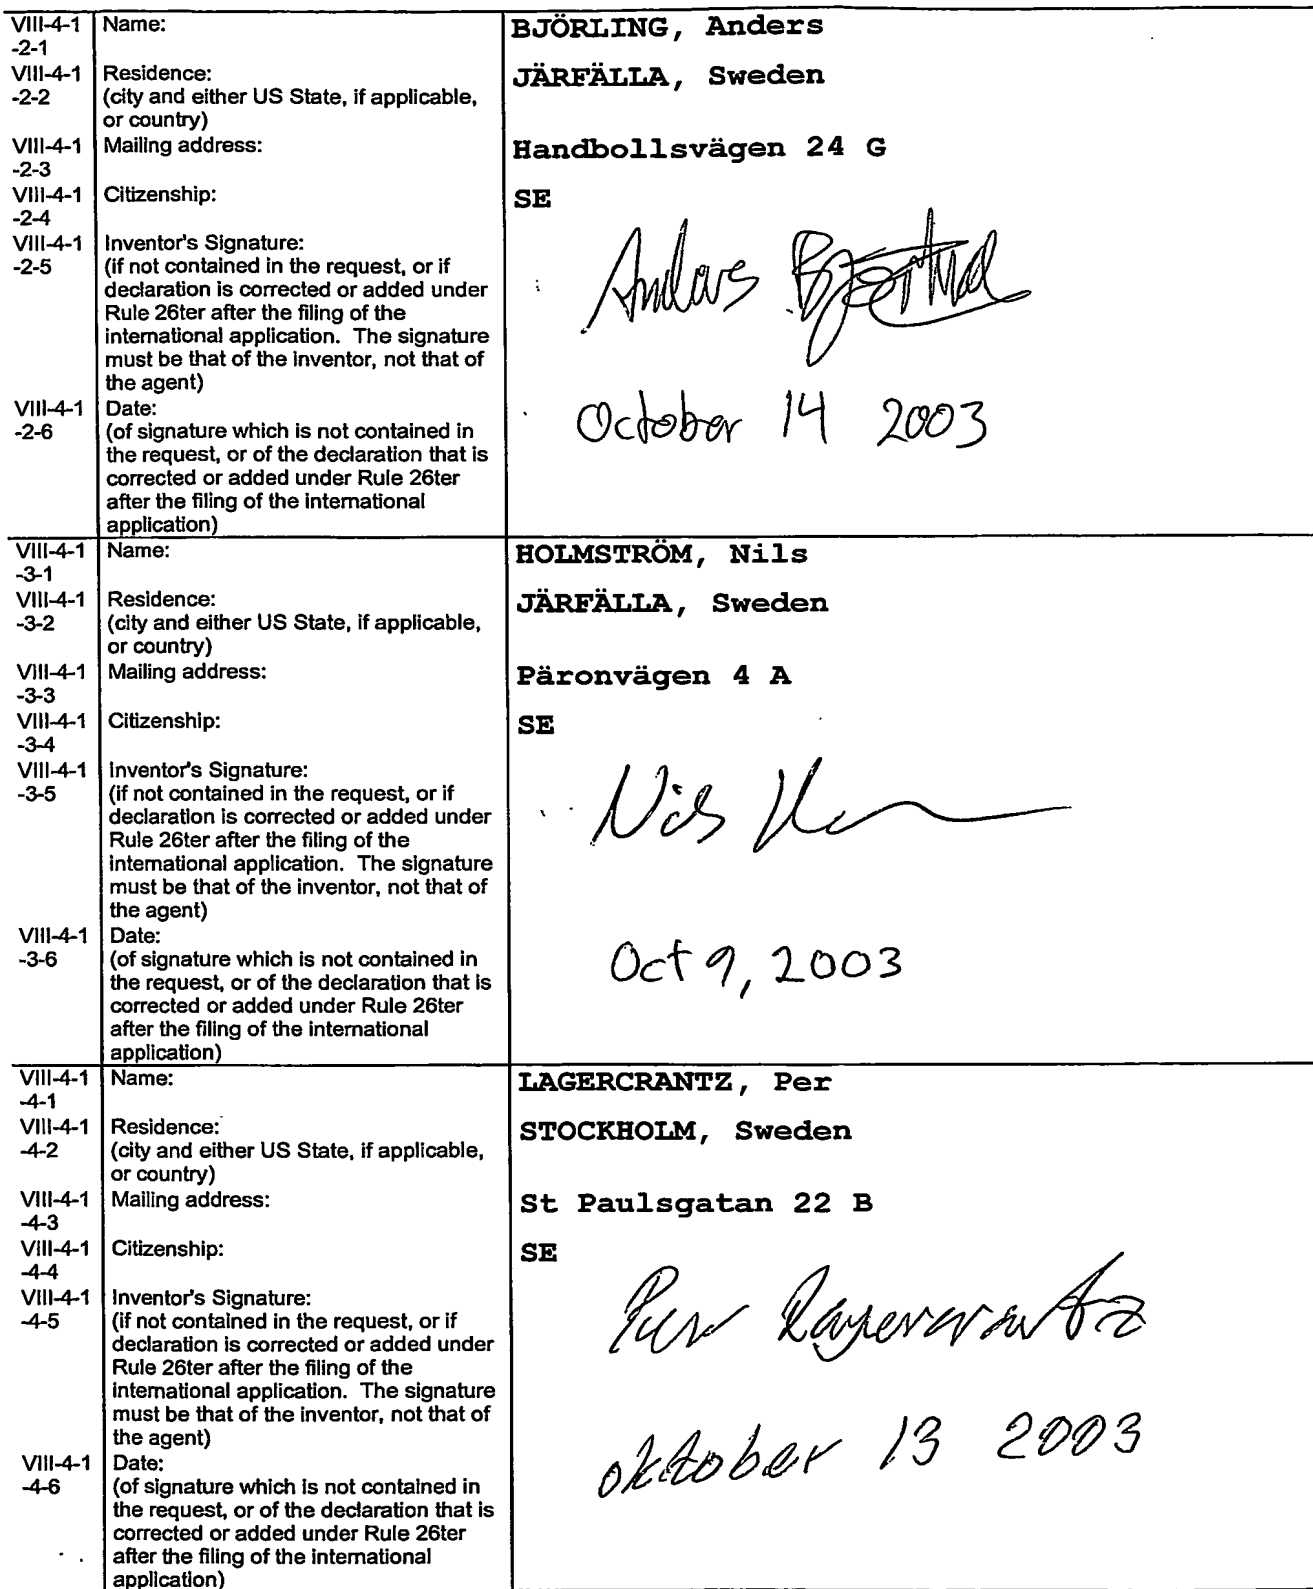 VIII-4-1 Name: BJÖRLING, Anders
-2-1
VIII-4-1 Residence: JÄRFÄLLA, Sweden
-2-2 (city and either US State, if applicable,
or country)
VIII-4-1 Mailing address: Handbollsvägen 24 G
-2-3
VIII-4-1 Citizenship: SE
-2-4
VIII-4-1 Inventor's Signature:
-2-5 (if not contained in the request, or if
declaration is corrected or added under
Rule 26ter after the filing of the
international application. The signature
must be that of the inventor, not that of
the agent)
Anders
VIII-4-1 Date: October 14 2003
-2-6 (of signature which is not contained in
the request, or of the declaration that is
corrected or added under Rule 26ter
after the filing of the international
application)
VIII-4-1 Name: HOLMSTRÖM, Nils
-3-1
VIII-4-1 Residence: JÄRFÄLLA, Sweden
-3-2 (city and either US State, if applicable,
or country)
VIII-4-1 Mailing address: Päronvägen 4 A
-3-3
VIII-4-1 Citizenship: SE
-3-4
VIII-4-1 Inventor's Signature:
-3-5 (if not contained in the request, or if
declaration is corrected or added under
Rule 26ter after the filing of the
international application. The signature
must be that of the inventor, not that of
the agent)
Nils
VIII-4-1 Date:
-3-6 (of signature which is not contained in
the request, or of the declaration that is
corrected or added under Rule 26ter
after the filing of the international
application)
Oct 9, 2003
VIII-4-1 Name: LAGERCRANTZ, Per
-4-1
VIII-4-1 Residence: STOCKHOLM, Sweden
-4-2 (city and either US State, if applicable,
or country)
VIII-4-1 Mailing address: St Paulsgatan 22 B
-4-3
VIII-4-1 Citizenship: SE
-4-4
VIII-4-1 Inventor's Signature:
-4-5 (if not contained in the request, or if
declaration is corrected or added under
Rule 26ter after the filing of the
international application. The signature
must be that of the inventor, not that of
the agent)
Per Lagercrantz
VIII-4-1 Date: oktober 13 2003
-4-6 (of signature which is not contained in
the request, or of the declaration that is
corrected or added under Rule 26ter
after the filing of the international
application)